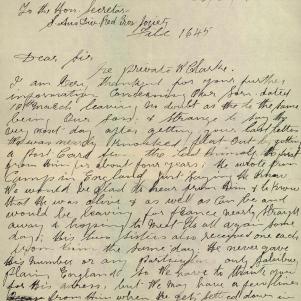 To the Hon. Secretar
S. Aus Div Red Cross Society
File 1645
Dear Sir,
re Private W Clarke.
I am Very thankful for your further
information Concerning Our Son, dated
10th March leaving no doubt as the to the fame
being Our Son. & Strange to say the
very next day after getting your last letter
We was nearly Knocked flat Out by getting
a Post Card from the lad himself the first
from Him in about four years, He wrote from
Camp in England, Just saying He Knew
We would be glad to hear from Him & to Know
that He was alive & as well as Can be and
would be leaving for france nearly straight
away & hoping to meet Us all again some
day, His two Sisters also received one each
from Him the same day, He never gave
his number or any particulars only Salisbury
Plain, England, So We have to thank you
for His address, but We may have a few lines
from Him when He gets settled down in